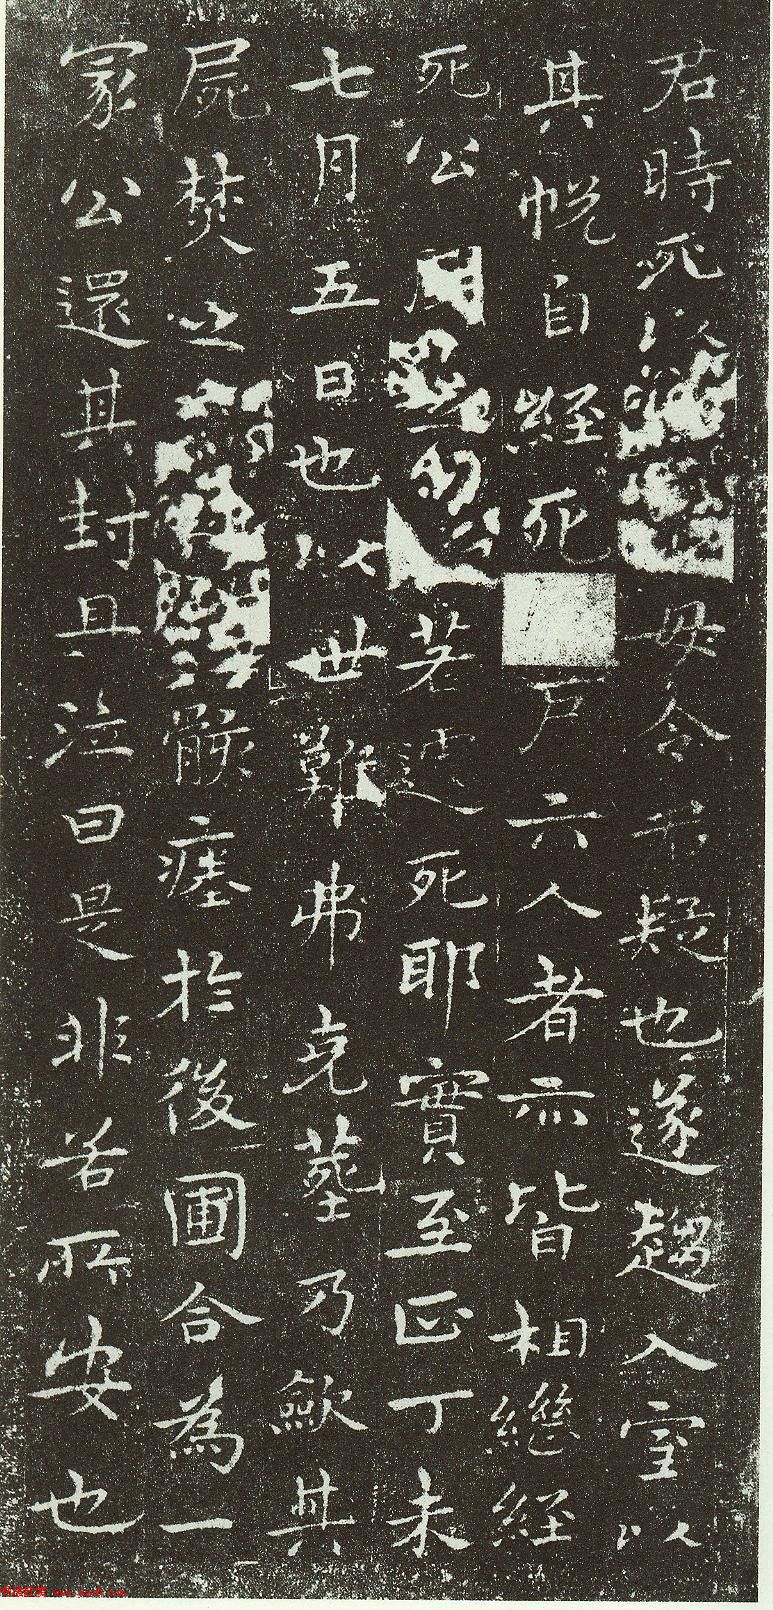 君時死以毋令疑也遂趨入室以
其帨自經死户六人者亦皆相繼經
死公若遽死耶實至正丁未
七月五日也以世難弗克葬乃歛其
屍焚之骸瘞於後圃合為一
冡公還其封且泣曰是非若所安也